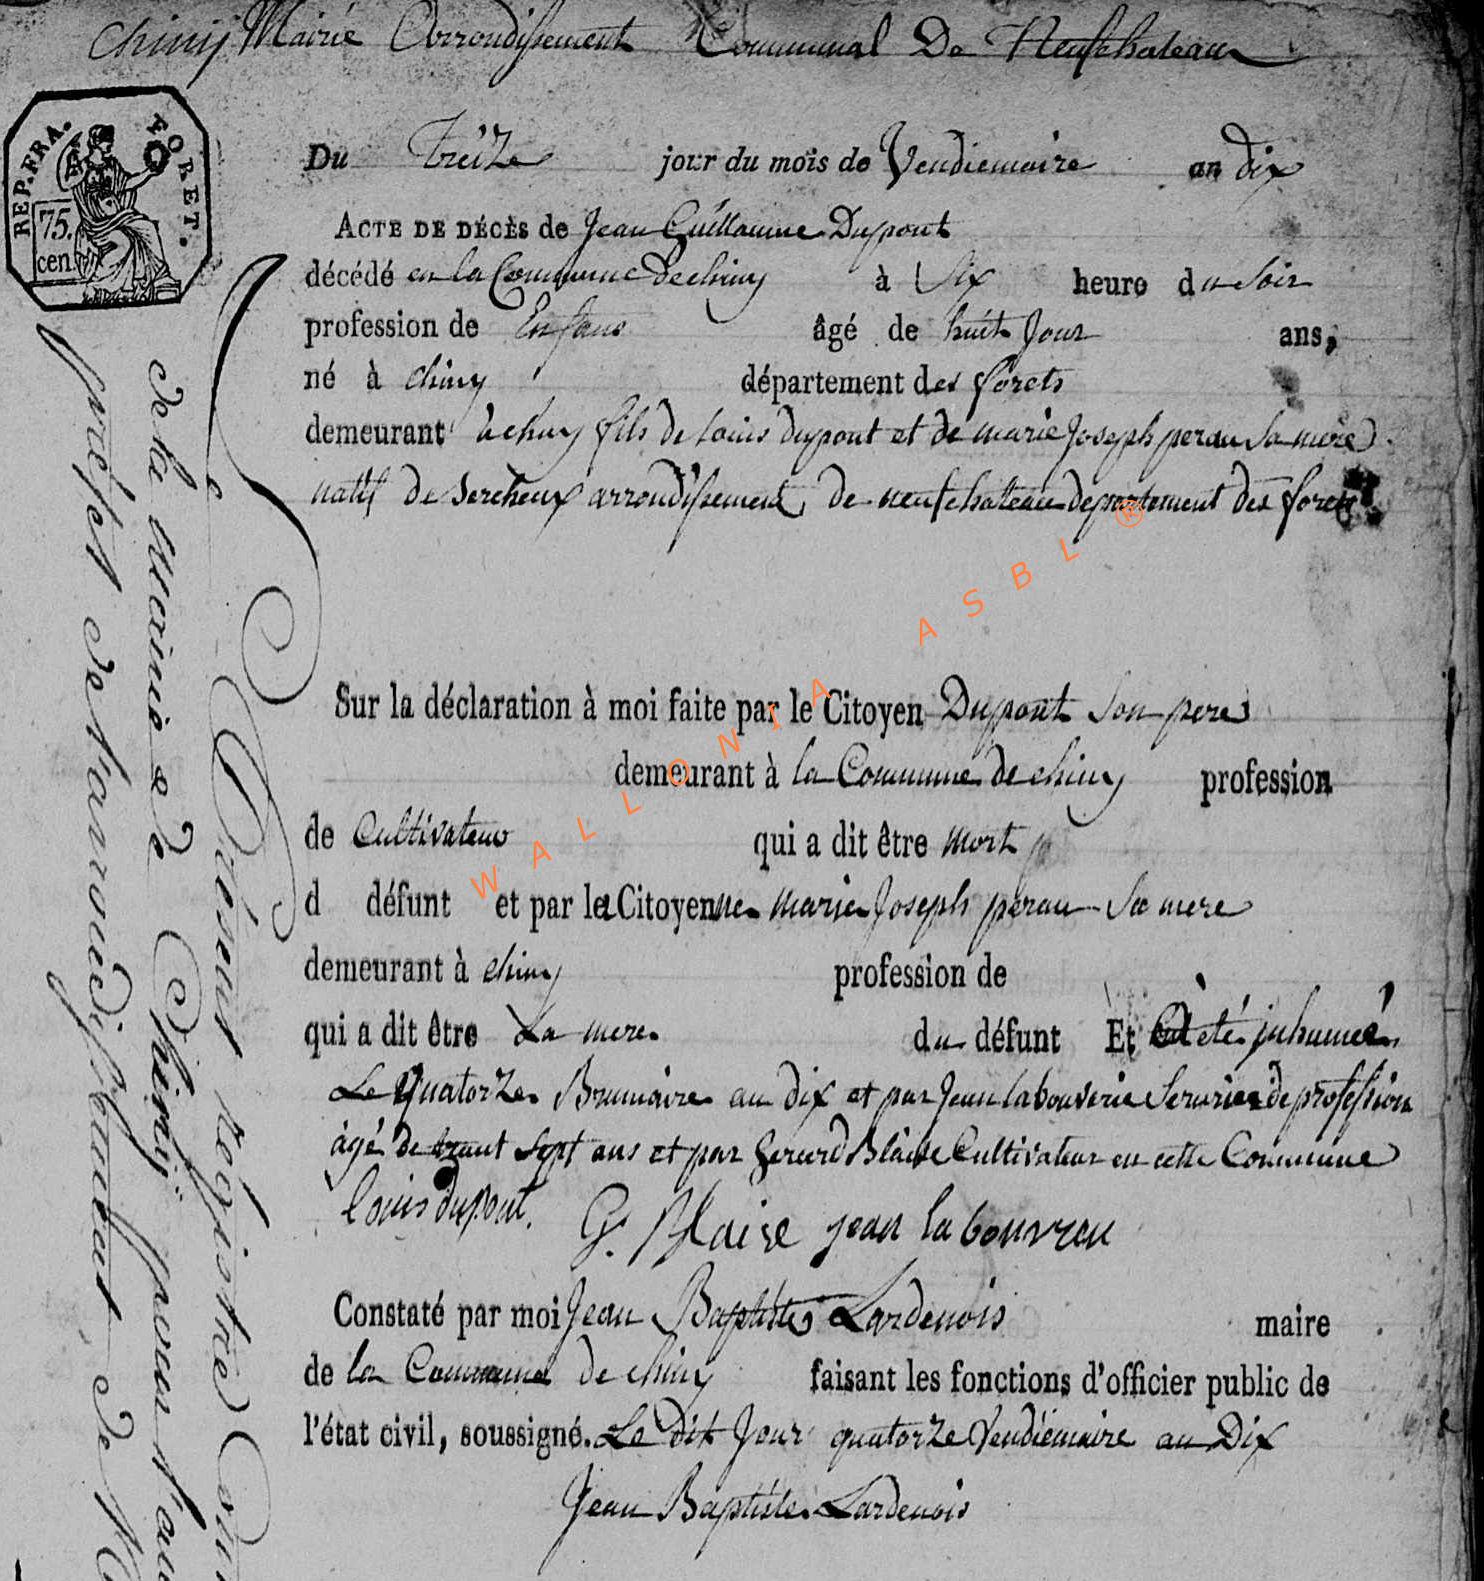 Chiny Mairie Arrondissement Communal De Neufchateau
REP. FRA.
FORET.
75.
cen.
Du treize jour du mois de Vendiemaire an dix
ACTE DE DÉCÈS de Jean Guillaume Dupont
décédé en la Commune de chiny à six heure du soir
profession de Enfans âgé de huit Jour ans,
né à chiny département des forets
demeurant à chiny fils de louis dupont et de marie Joseph perau sa mere
natif de arrondissement de neufchateau departement des forets
Sur la déclaration à moi faite par le Citoyen Dupont son pere
demeurant à la Commune de chiny profession
de Cultivateur qui a dit être mort
d défunt et par la Citoyenne marie Joseph perau sa mere
demeurant à chiny profession de
qui a dit être La mere du défunt Et été inhumé
Le Quatorze Brumaire an dix et par Jean labouverie de profession
âgé de sept ans et par Gerard Blaise Cultivateur en cette Commune
louis dupont. G. Blaise jean la bouvreu
Constaté par moi Jean Baptiste Lardenois maire
de la Commune de chiny faisant les fonctions d'officier public de
l'état civil, soussigné. Le dit Jour quatorze Vendiemaire an Dix
Jean Baptiste Lardenois
Présent Régistre
de la Mairie de Chiny pour l'an
préfet de l'arrondissement de
WALLONIA ASBL ®